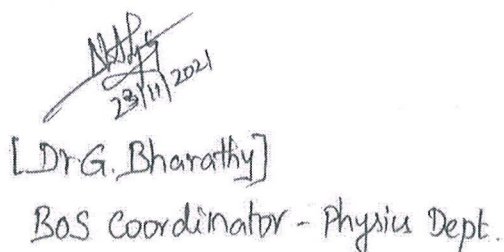 23/11/2021
[Dr G. Bharathy]
BOS Coordinator - Physics Dept.